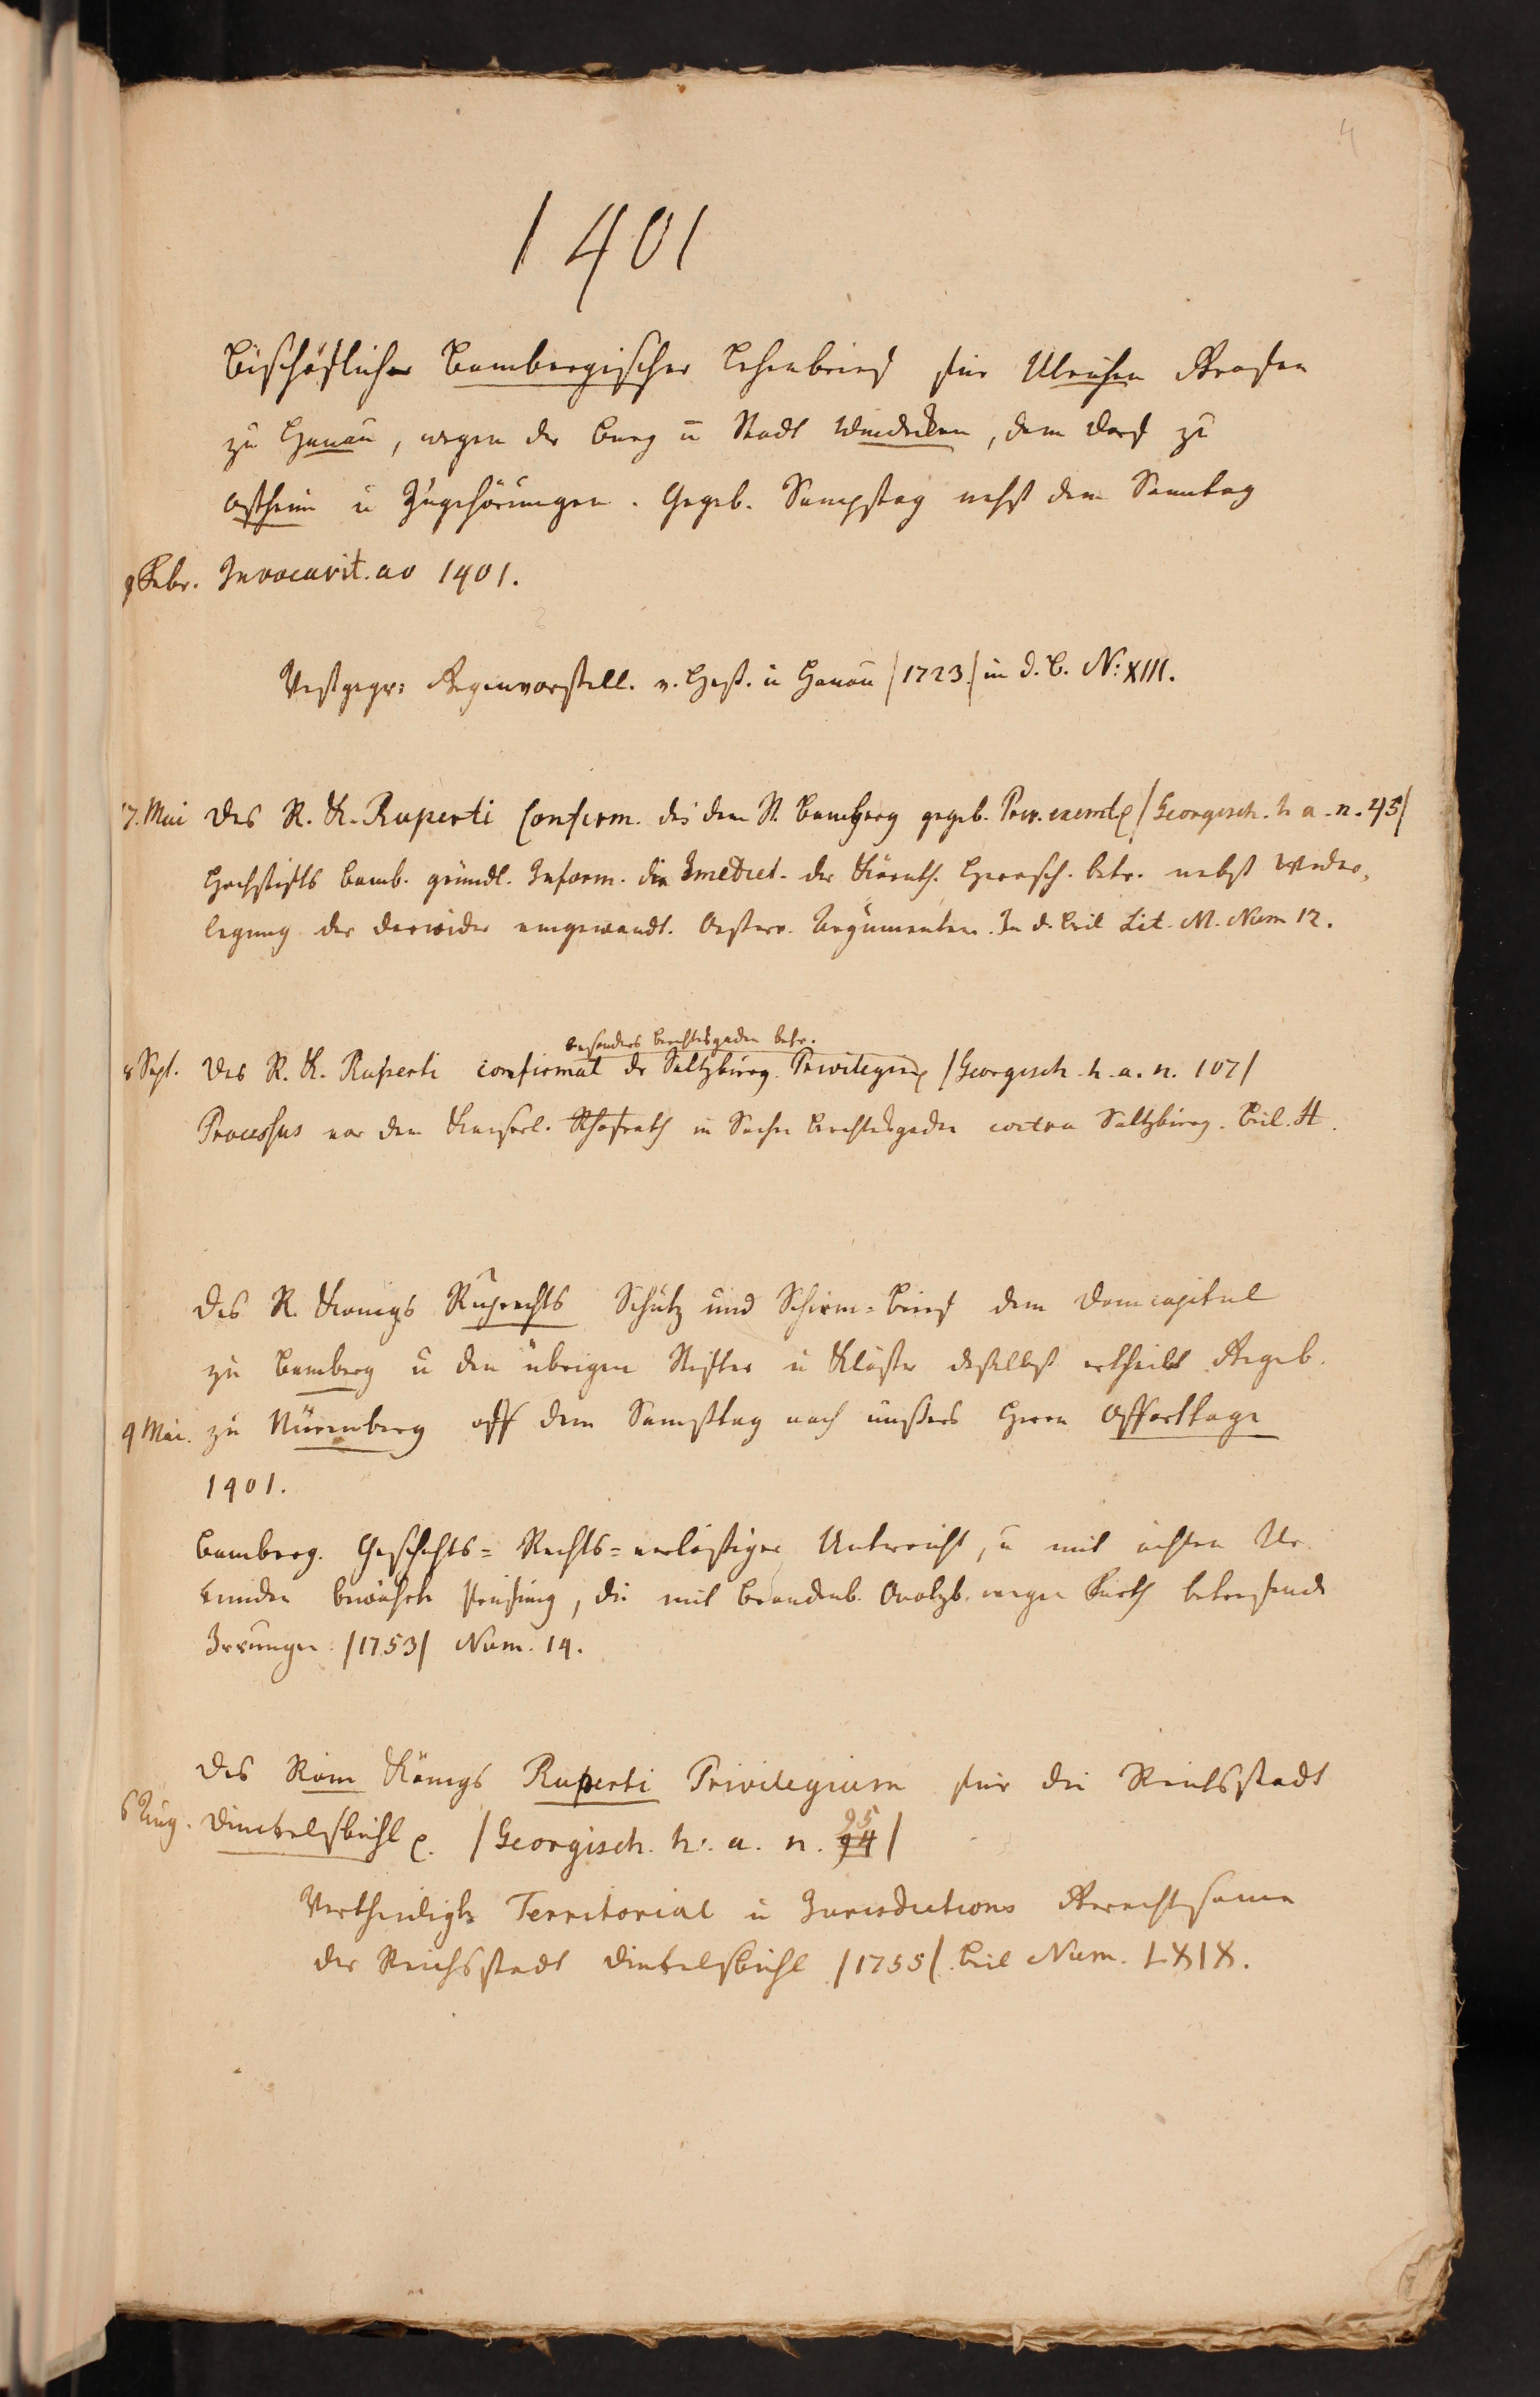 4
1401
Bischöflicher Bambergischer Lehenbrief für Ulrichen Grafen
zu Hanau, wegen der Burg u Stadt Windecken, dem Dorf zu
Ostheim u Zugehörungen. Gegeb. Sampstag nehst dem Sonntag
9 Febr. Invocavit. ao 1401.
Gegenvorstell. v. Heß. u Hanau /1723/ in d. B. N: XIII.
17. Mai Des R. K. Ruperti Confirm. des dem St. Bamberg gegeb. Priv. exemt. /Georgisch. h. a. n. 45/
Hochstifts Bamb. gründl. Inform. die Imediet. der Kärnth. Herrsch. betr. nebst Wider,
legung der darwider eingewandt. Oesterr. Argumenten. In d. Beil Lit. M. Num 12.
besonders Berchtesgaden betr.
8 Sept. Des R. K. Ruperti confirmat der Saltzburg. Privilegien /Georgisch. h. a. n. 107/
Processus vor dem Kayserl. Rhofrath in Sachen Berchtesgaden contra Saltzburg. Beil. H.
Des R. Konigs Ruprechts Schutz und Schirm=Brief dem Domcapitul
zu Bamberg u den übrigen Stifter u Klöster deselbst ertheilt Gegeb.
9 Mai. zu Nürnberg off dem Samßtag nach unßers Herrn Offarttage
1401.
Bamberg. Geschichts= Rechts=verläßiger Unterricht, u mit ächten Ur
kunden bewährte Prüfung, die mit Brandenb. Onolzb. wegen Fürth betreffende
Irrungen. /1753/ Num. 14.
Des Röm Königs Ruperti Privilegium für die Reichsstadt
6 Aug. Dinckelsbühl. /Georgisch. h. a. n. 94 95/
Vertheidigte Territorial u Jurisdictions Gerechtsame
der Reichsstadt Dinkelsbühl /1755/. Beil Num. LXIX.